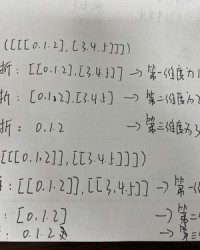 ([[[0.1.2],[3.4.5]]])
折: [[0.1.2],[3.4.5]] → 第一维度为1
折: [0.1.2],[3.4.5] → 第二维度为2
折: 0.1.2 → 第三维度为3
[[[0.1.2]],[[3.4.5]]])
: [[0.1.2]],[[3.4.5]] → 第一
: [0.1.2] → 第二
: 0.1.2 → 第三